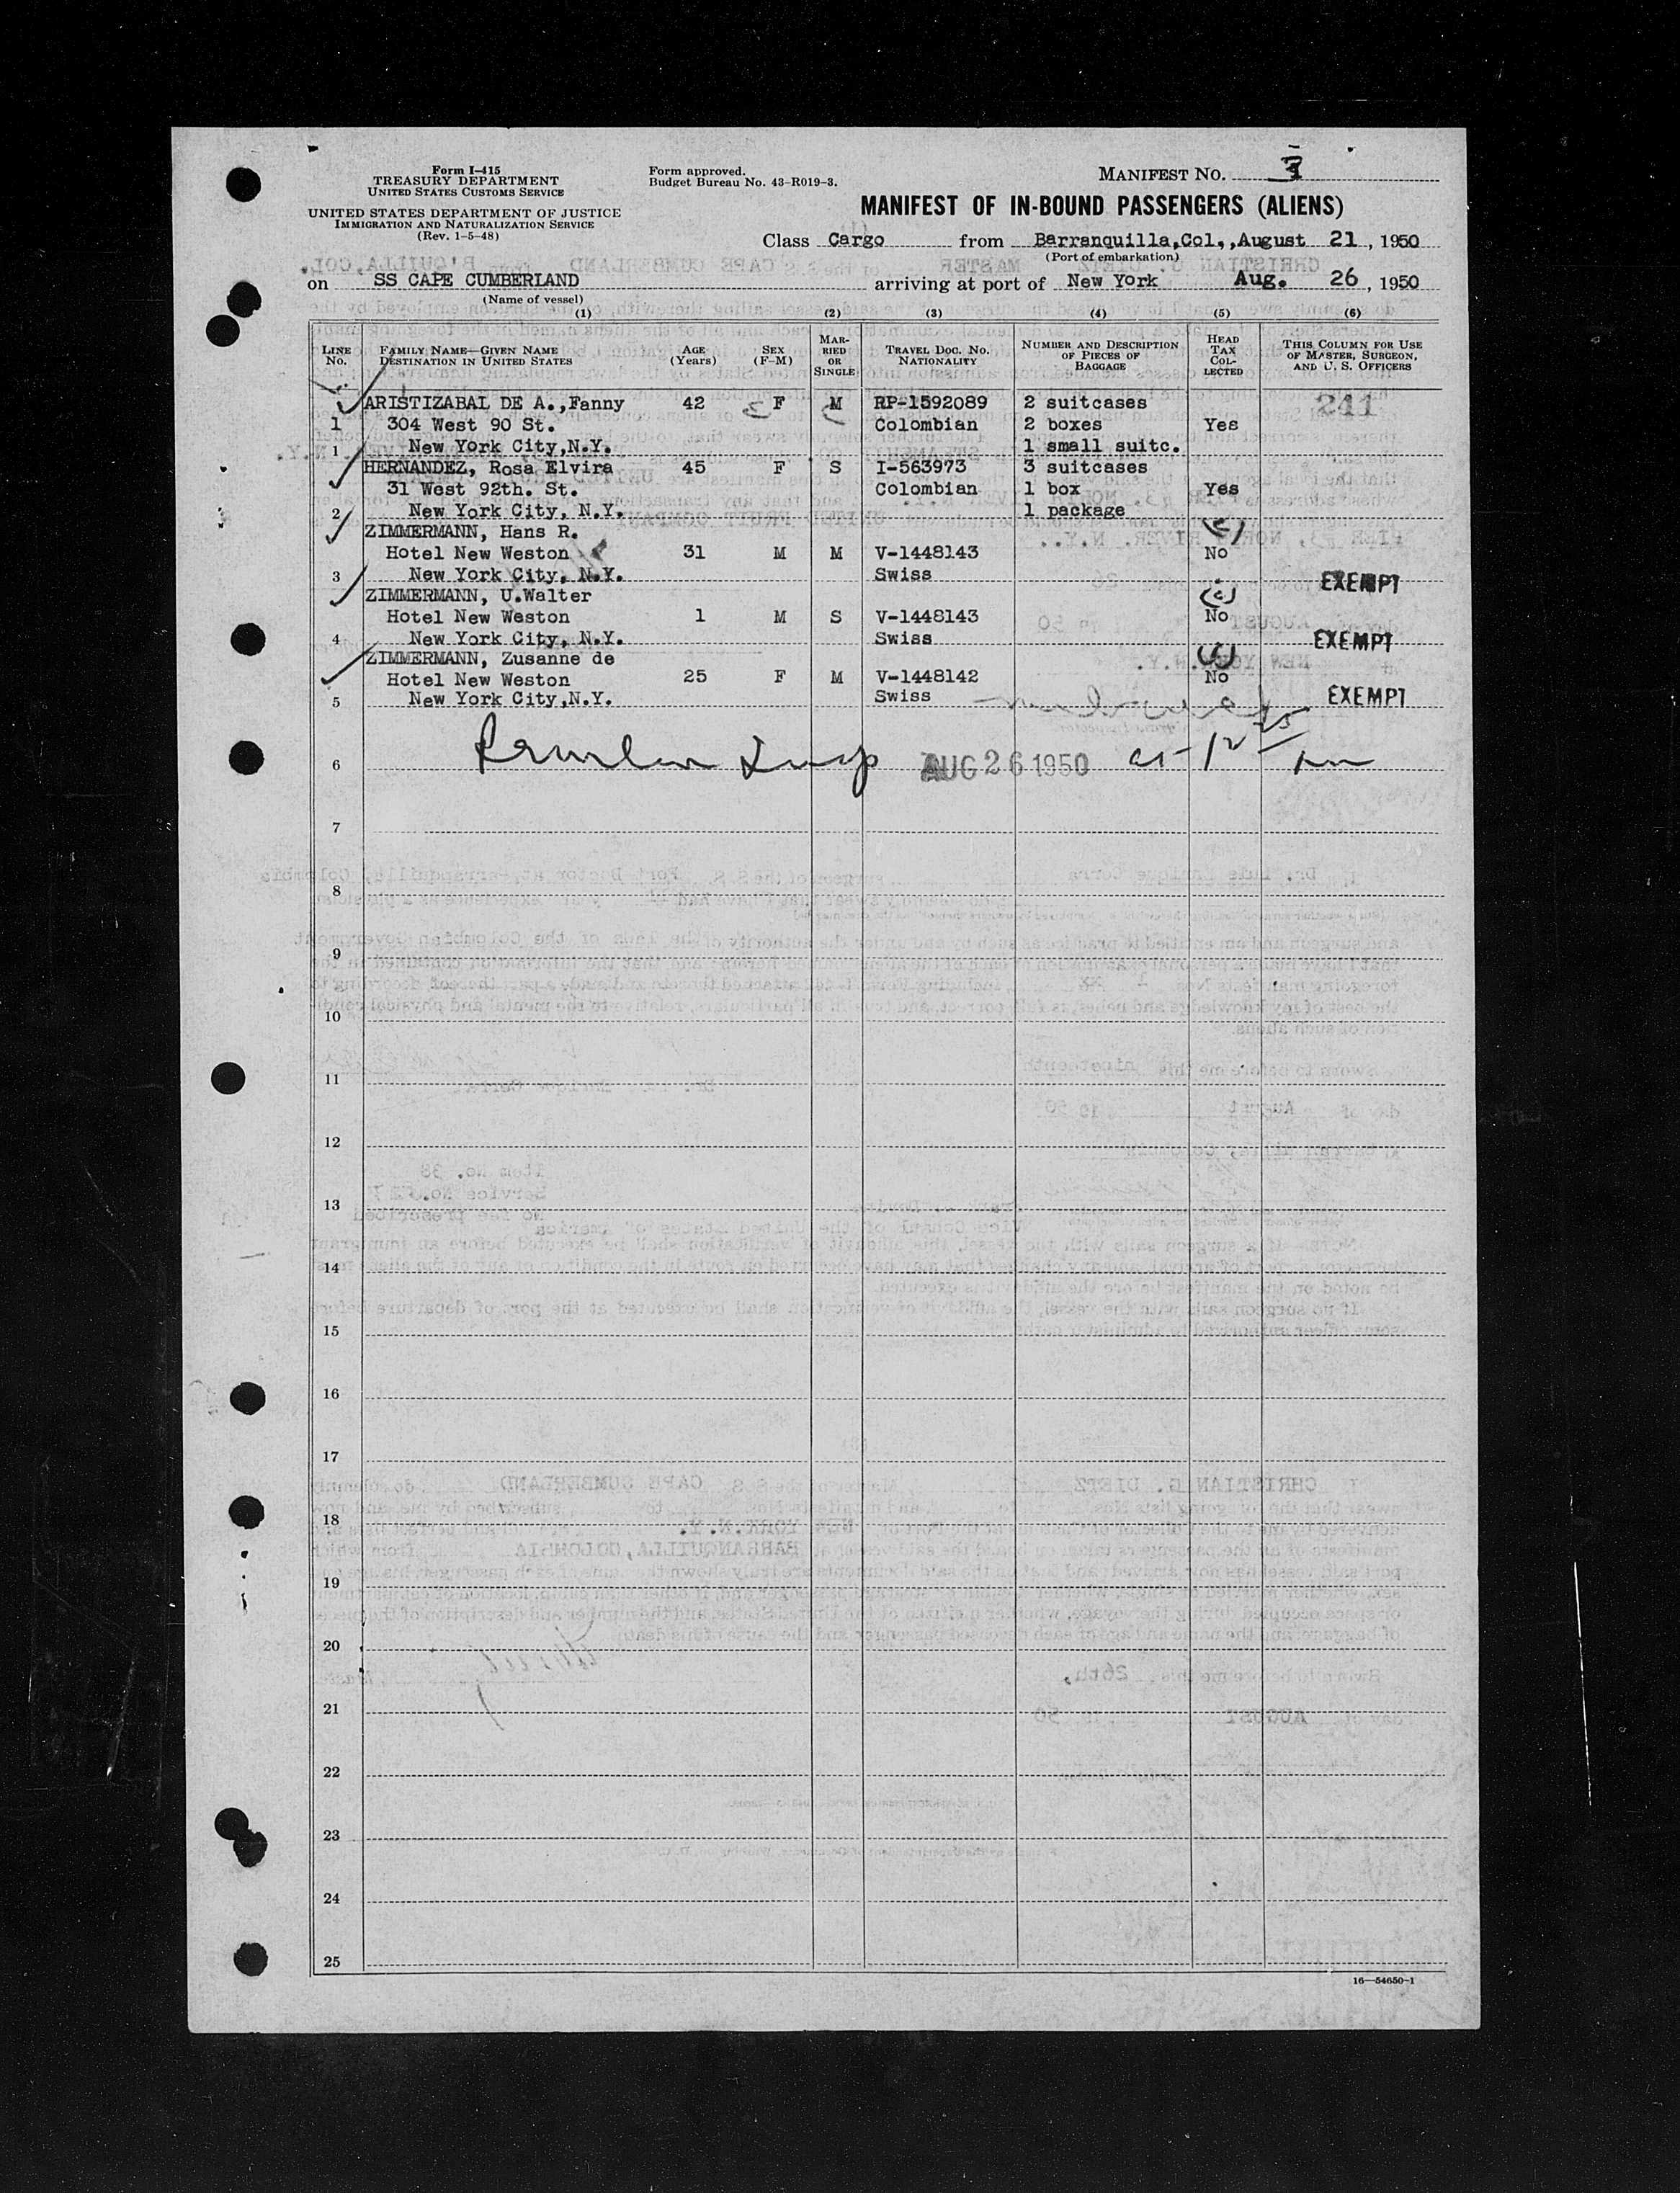 Form I-415
TREASURY DEPARTMENT
UNITED STATES CUSTOMS SERVICE
UNITED STATES DEPARTMENT OF JUSTICE
IMMIGRATION AND NATURALIZATION SERVICE
(Rev. 1-5-48)
Form approved.
Budget Bureau No. 43-R019-3.
MANIFEST NO.
MANIFEST OF IN-BOUND PASSENGERS (ALIENS)
Class Cargo from Barranquilla,Col.,August 21, 1950
(Port of embarkation)
on SS CAPE CUMBERLAND arriving at port of New York Aug. 26, 1950
(Name of vessel)
(1) (2) (3) (4) (5) (6)
LINE NO. FAMILY NAME—GIVEN NAME DESTINATION IN UNITED STATES AGE (Years) SEX (F-M) MARRIED OR SINGLE TRAVEL DOC. NO. NATIONALITY NUMBER AND DESCRIPTION OF PIECES OF BAGGAGE HEAD TAX COLLECTED THIS COLUMN FOR USE OF MASTER, SURGEON, AND U. S. OFFICERS
ARISTIZABAL DE A.,Fanny 42 F M RP-1592089 2 suitcases 241
1 304 West 90 St. Colombian 2 boxes Yes
1 New York City,N.Y. 1 small suitc.
HERNANDEZ, Rosa Elvira 45 F S I-563973 3 suitcases
31 West 92th. St. Colombian 1 box Yes
2 New York City, N.Y. 1 package
ZIMMERMANN, Hans R.
Hotel New Weston 31 M M V-1448143 No
3 New York City, N.Y. Swiss EXEMPT
ZIMMERMANN, U.Walter
Hotel New Weston 1 M S V-1448143 No
4 New York City, N.Y. Swiss EXEMPT
ZIMMERMANN, Zusanne de
Hotel New Weston 25 F M V-1448142 No
5 New York City,N.Y. Swiss EXEMPT
6 AUG 26 1950 at 12
7
8
9
10
11
12
13
14
15
16
17
18
19
20
21
22
23
24
25
16—54650-1